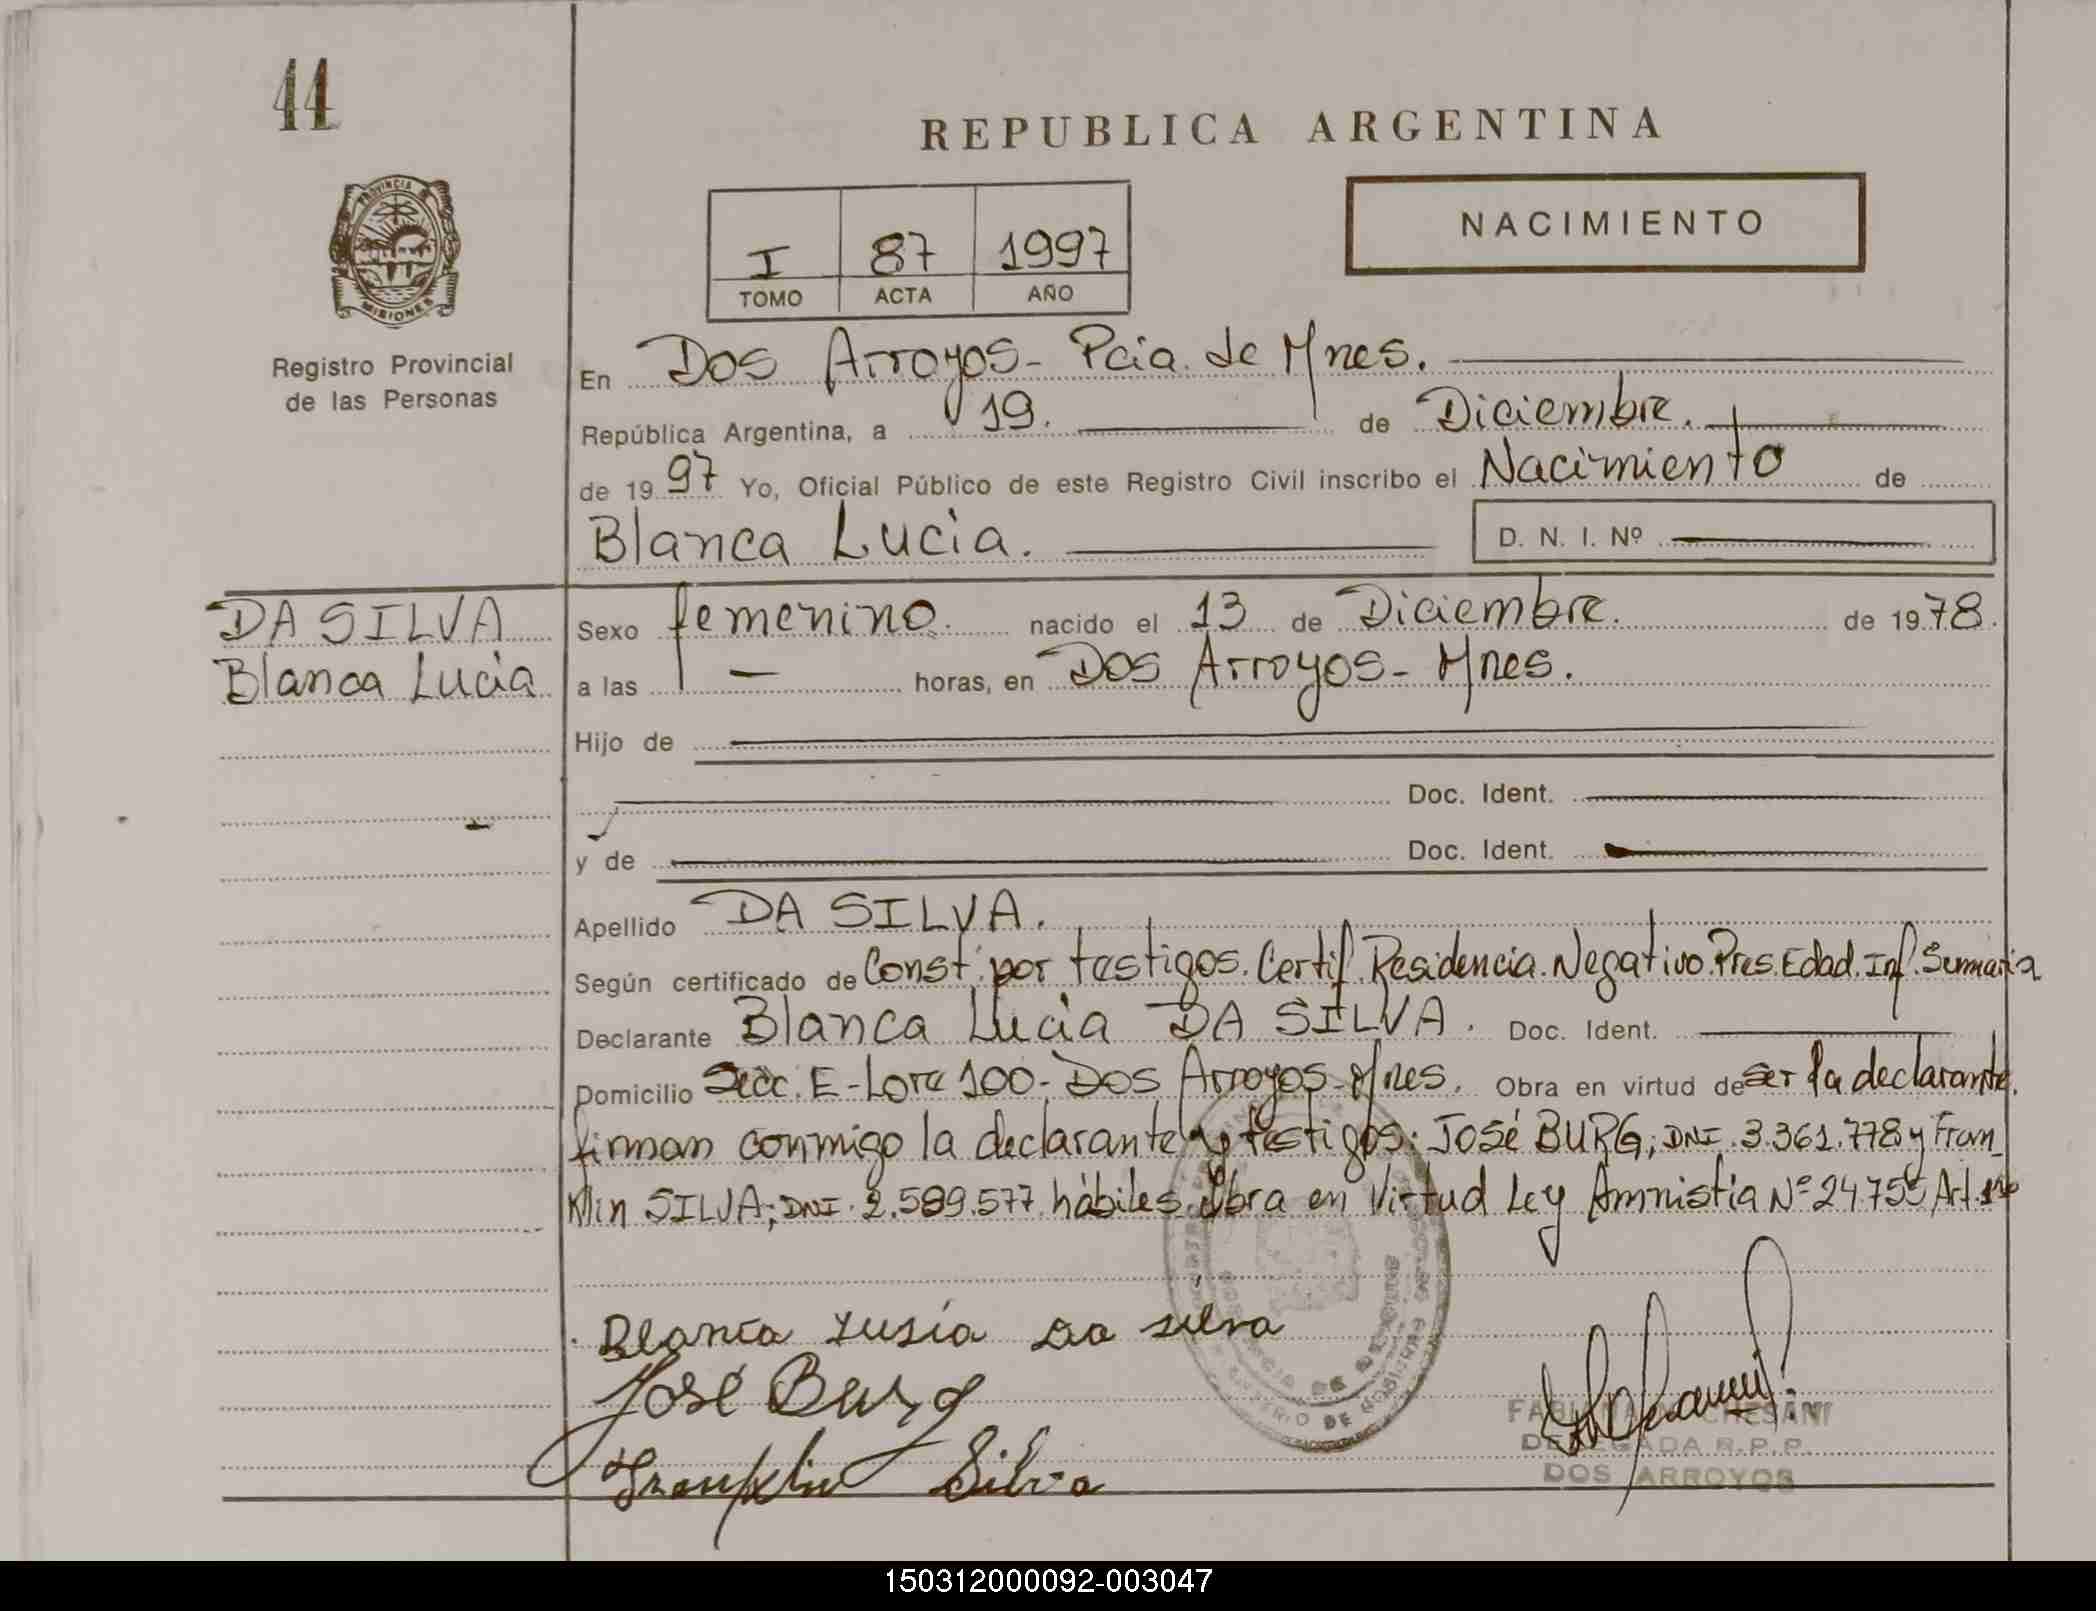 44
REPUBLICA ARGENTINA
NACIMIENTO
I 87 1997
TOMO ACTA AÑO
PROVINCIA DE
MISIONES
Registro Provincial
de las Personas
En Dos Arroyos - Pcia. de Mnes.
República Argentina, a 19. de Diciembre.
de 1997 Yo, Oficial Público de este Registro Civil inscribo el Nacimiento de
Blanca Lucia. D. N. I. Nº
DA SILVA
Blanca Lucia
Sexo femenino. nacido el 13 de Diciembre. de 1978.
a las — horas, en Dos Arroyos - Mnes.
Hijo de
Doc. Ident.
y de Doc. Ident.
Apellido DA SILVA.
Según certificado de Const. por testigos. Certif. Residencia. Negativo. Pres. Edad. Inf. Sumaria
Declarante Blanca Lucia DA SILVA. Doc. Ident.
Domicilio Secc. E - Lote 100 - Dos Arroyos - Mnes. Obra en virtud de ser la declarante.
firman conmigo la declarante y testigos: José BURG; DNI. 3.361.778 y Fran_
klin SILVA; DNI. 2.589.577 hábiles. Obra en Virtud Ley Amnistia Nº 24.755 Art. 1º
Blanca Lusía Da silva
José Burg
Franklin Silva
FABIANA MARCHESANI
DELEGADA R.P.P.
DOS ARROYOS
150312000092-003047